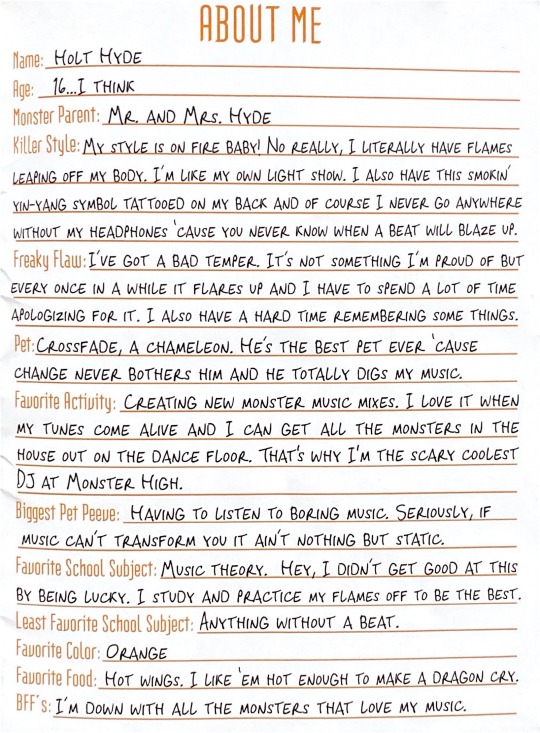 ABOUT ME
Name: HOLT HYDE
Age: 16...I THINK
Monster Parent: MR. AND MRS. HYDE
Killer Style: MY STYLE IS ON FIRE BABY! NO REALLY, I LITERALLY HAVE FLAMES
LEAPING OFF MY BODY. I'M LIKE MY OWN LIGHT SHOW. I ALSO HAVE THIS SMOKIN'
YIN-YANG SYMBOL TATTOOED ON MY BACK AND OF COURSE I NEVER GO ANYWHERE
WITHOUT MY HEADPHONES 'CAUSE YOU NEVER KNOW WHEN A BEAT WILL BLAZE UP.
Freaky Flaw: I'VE GOT A BAD TEMPER. IT'S NOT SOMETHING I'M PROUD OF BUT
EVERY ONCE IN A WHILE IT FLARES UP AND I HAVE TO SPEND A LOT OF TIME
APOLOGIZING FOR IT. I ALSO HAVE A HARD TIME REMEMBERING SOME THINGS.
Pet: CROSSFADE, A CHAMELEON. HE'S THE BEST PET EVER 'CAUSE
CHANGE NEVER BOTHERS HIM AND HE TOTALLY DIGS MY MUSIC.
Favorite Activity: CREATING NEW MONSTER MUSIC MIXES. I LOVE IT WHEN
MY TUNES COME ALIVE AND I CAN GET ALL THE MONSTERS IN THE
HOUSE OUT ON THE DANCE FLOOR. THAT'S WHY I'M THE SCARY COOLEST
DJ AT MONSTER HIGH.
Biggest Pet Peeve: HAVING TO LISTEN TO BORING MUSIC. SERIOUSLY, IF
MUSIC CAN'T TRANSFORM YOU IT AIN'T NOTHING BUT STATIC.
Favorite School Subject: MUSIC THEORY. HEY, I DIDN'T GET GOOD AT THIS
BY BEING LUCKY. I STUDY AND PRACTICE MY FLAMES OFF TO BE THE BEST.
Least Favorite School Subject: ANYTHING WITHOUT A BEAT.
Favorite Color: ORANGE
Favorite Food: HOT WINGS. I LIKE 'EM HOT ENOUGH TO MAKE A DRAGON CRY.
BFF's: I'M DOWN WITH ALL THE MONSTERS THAT LOVE MY MUSIC.